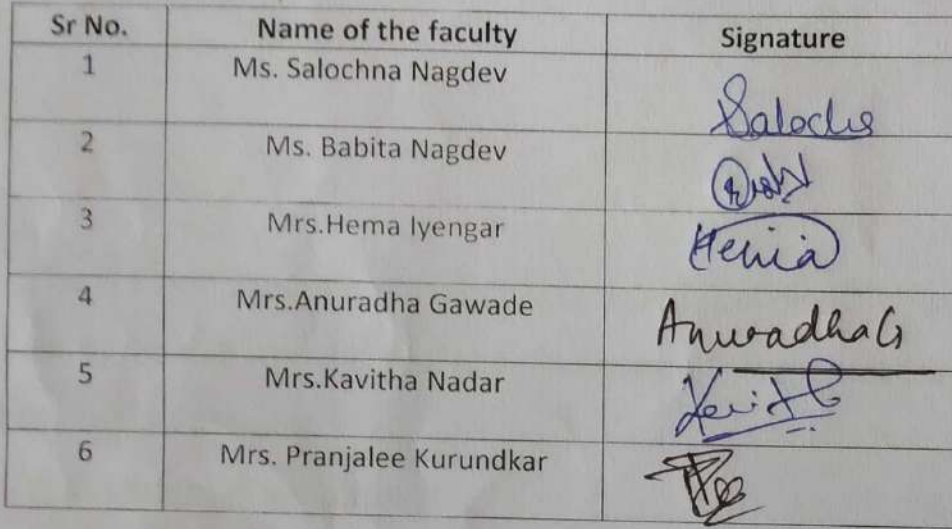 Sr No. Name of the faculty Signature
1 Ms. Salochna Nagdev Salochs
2 Ms. Babita Nagdev
3 Mrs.Hema Iyengar Hema
4 Mrs.Anuradha Gawade AnuradhaG
5 Mrs.Kavitha Nadar
6 Mrs. Pranjalee Kurundkar